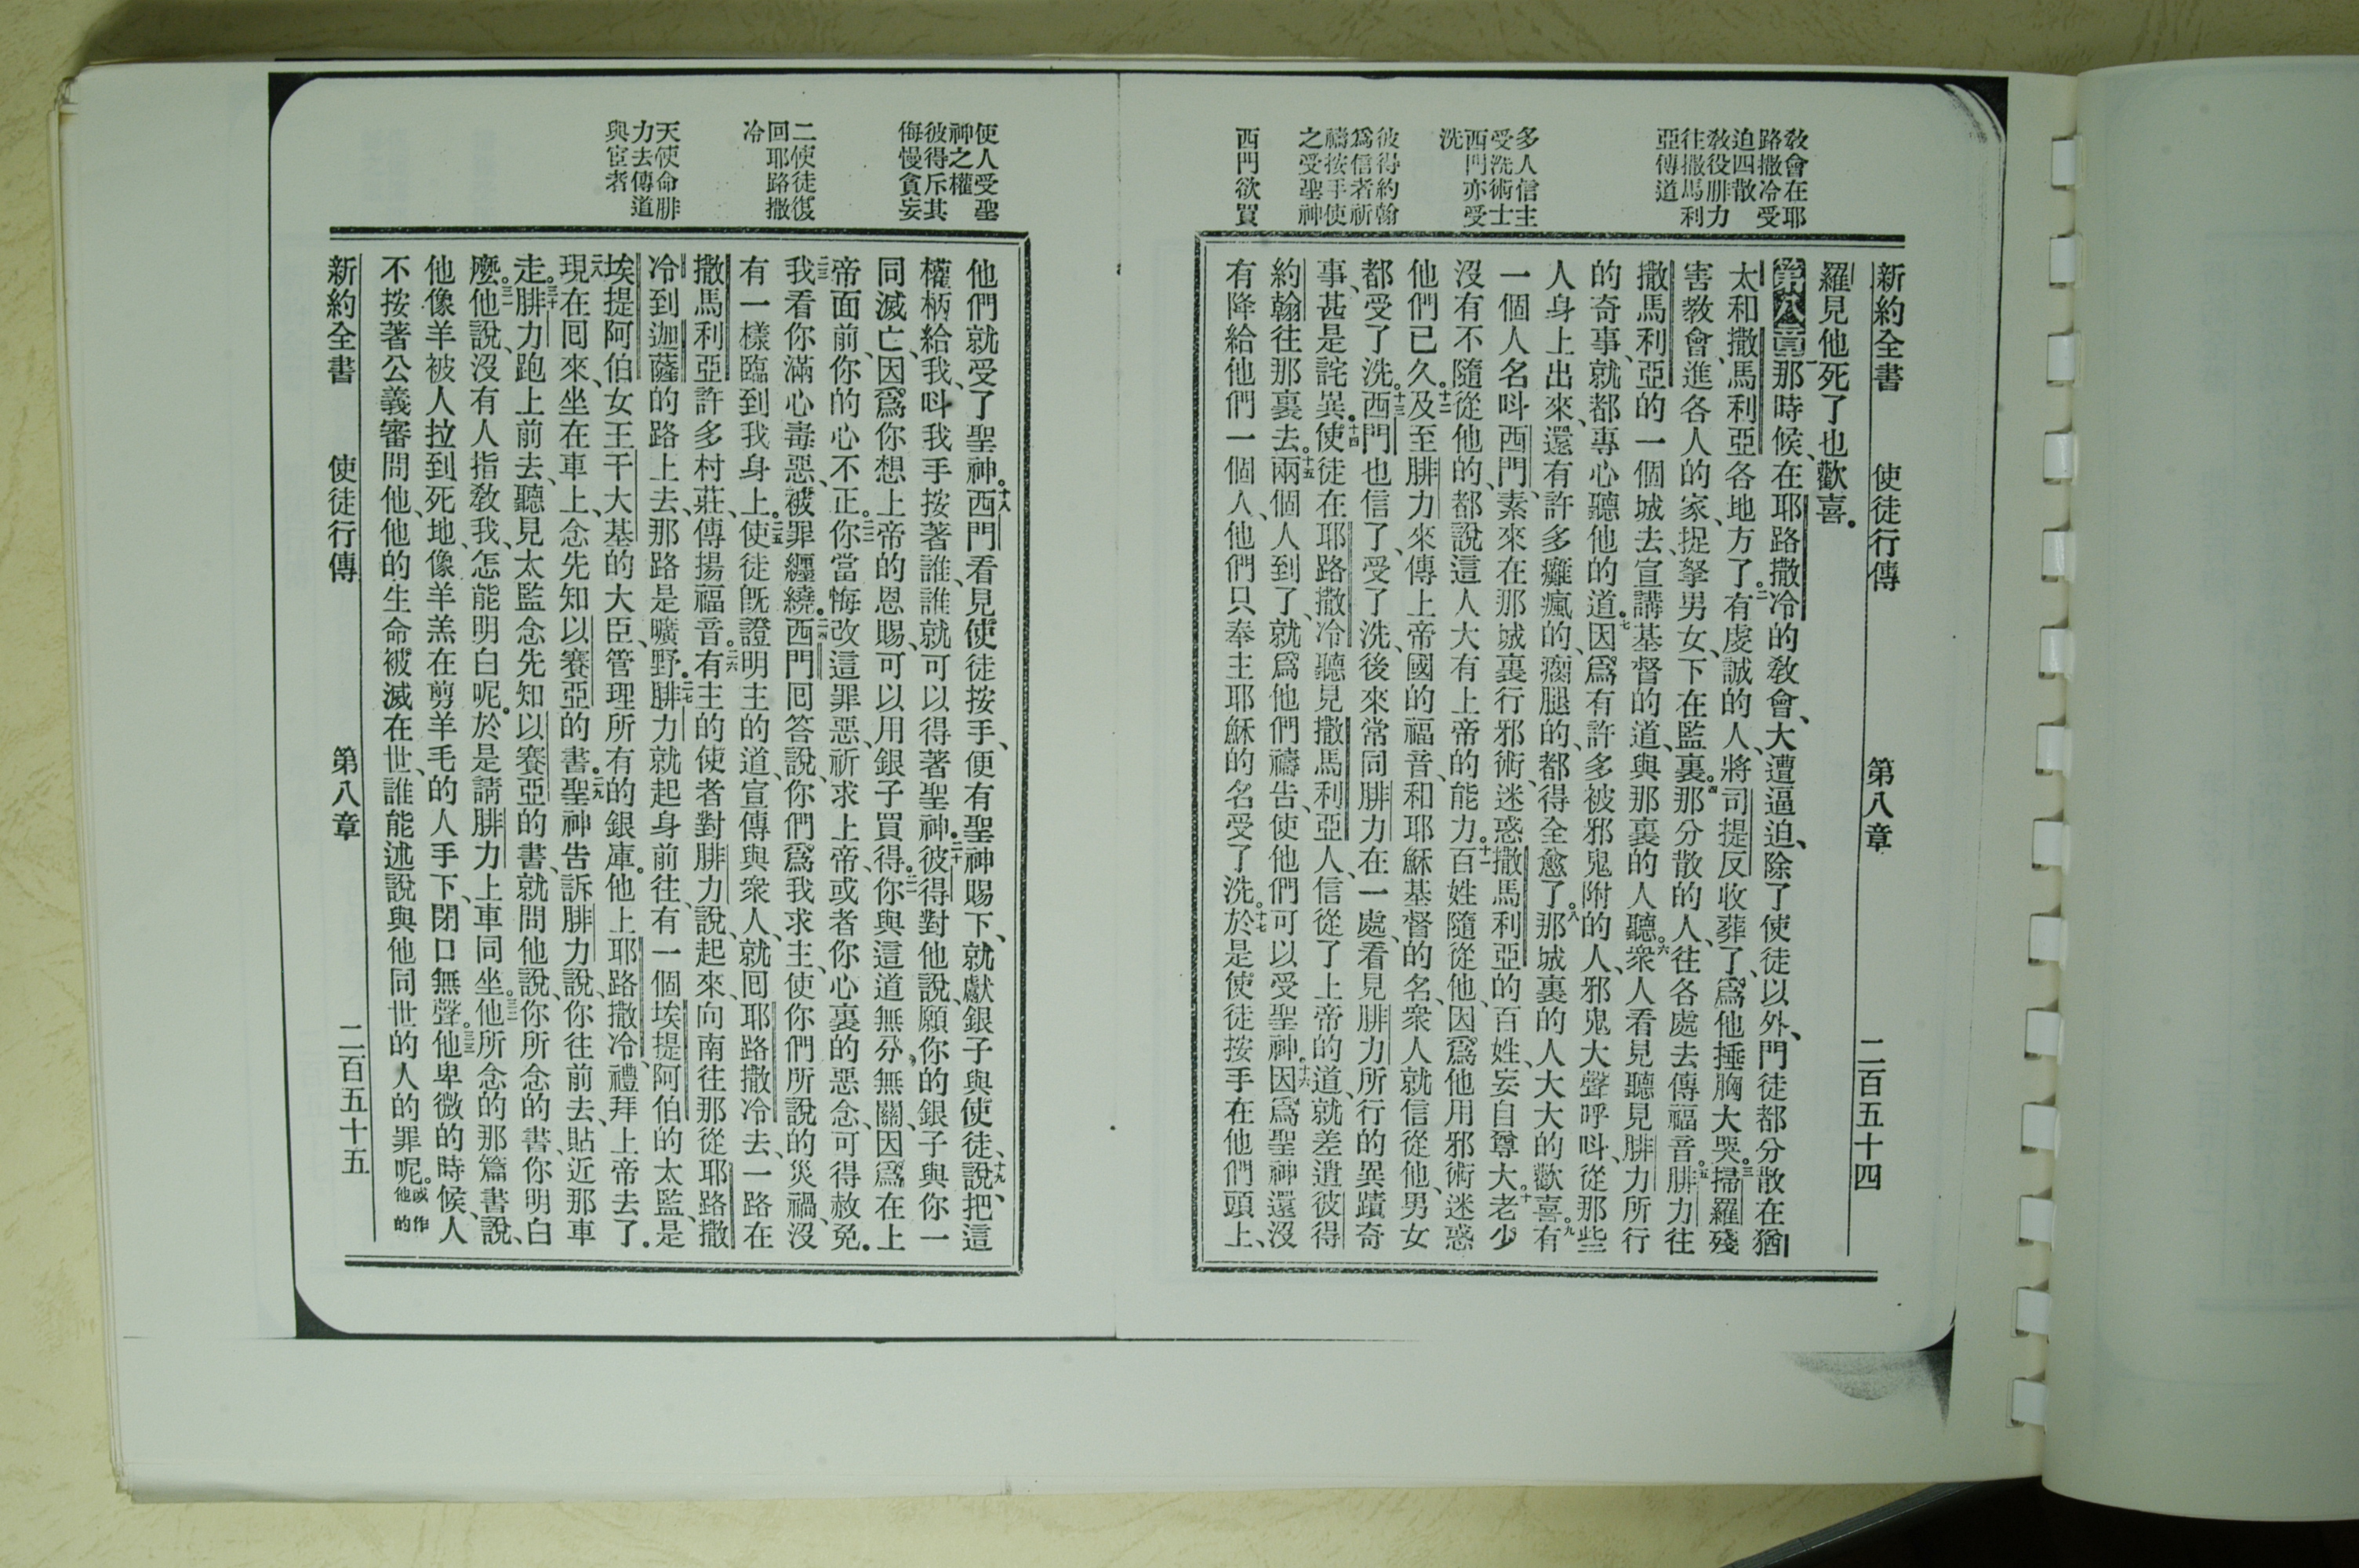 新約全書 使徒行傳 第八章 二百五十四
教會在耶
路撒冷受
迫四散
教役腓力
往撒馬利
亞傳道
多人信主
受洗術士
西門亦受
洗
彼得約翰
爲信者祈
禱按手使
之受聖神
西門欲買
羅見他死了也歡喜。
第八章一那時候、在耶路撒冷的教會、大遭逼迫、除了使徒以外、門徒都分散在猶
太和撒馬利亞各地方了。二有虔誠的人、將司提反收葬了、爲他捶胸大哭。三掃羅殘
害教會、進各人的家、捉拏男女、下在監裏。四那分散的人、往各處去傳福音。五腓力往
撒馬利亞的一個城去、宣講基督的道、與那裏的人聽。六衆人看見聽見腓力所行
的奇事、就都專心聽他的道。七因爲有許多被邪鬼附的人、邪鬼大聲呼呌、從那些
人身上出來、還有許多癱瘋的、瘸腿的、都得全愈了。八那城裏的人大大的歡喜。九有
一個人名呌西門、素來在那城裏行邪術、迷惑撒馬利亞的百姓、妄自尊大。十老少
沒有不隨從他的、都說這人大有上帝的能力。十一百姓隨從他、因爲他用邪術迷惑
他們已久。十二及至腓力來傳上帝國的福音、和耶穌基督的名、衆人就信從他、男女
都受了洗。十三西門也信了、受了洗、後來常同腓力在一處、看見腓力所行的異蹟奇
事、甚是詫異。十四使徒在耶路撒冷聽見撒馬利亞人、信從了上帝的道、就差遣彼得
約翰往那裏去。十五兩個人到了、就爲他們禱告、使他們可以受聖神。十六因爲聖神還沒
有降給他們一個人、他們只奉主耶穌的名受了洗。十七於是使徒按手在他們頭上、
使人受聖
神之權
彼得斥其
侮慢貪妄
二使徒復
回耶路撒
冷
天使命腓
力去傳道
與宦者
他們就受了聖神。十八西門看見使徒按手、便有聖神賜下、就獻銀子與使徒、十九說、把這
權柄給我、呌我手按著誰、誰就可以得著聖神。二十彼得對他說、願你的銀子與你一
同滅亡、因爲你想上帝的恩賜、可以用銀子買得。二一你與這道無分、無關、因爲在上
帝面前、你的心不正。二二你當悔改這罪惡、祈求上帝、或者你心裏的惡念、可得赦免。
二三我看你滿心毒惡、被罪纏繞。二四西門囘答說、你們爲我求主、使你們所說的災禍、沒
有一樣臨到我身上。二五使徒旣證明主的道、宣傳與衆人、就回耶路撒冷去、一路在
撒馬利亞許多村莊、傳揚福音。二六有主的使者對腓力說、起來、向南往那從耶路撒
冷到迦薩的路上去、那路是曠野。二七腓力就起身前往、有一個埃提阿伯的太監、是
埃提阿伯女王干大基的大臣、管理所有的銀庫。他上耶路撒冷、禮拜上帝去了。
二八現在囘來、坐在車上、念先知以賽亞的書。二九聖神告訴腓力說、你往前去、貼近那車
走。三十腓力跑上前去、聽見太監念先知以賽亞的書、就問他說、你所念的書、你明白
麼。三一他說、沒有人指教我、怎能明白呢。於是請腓力上車同坐。三二他所念的那篇書說、
他像羊被人拉到死地、像羊羔在剪羊毛的人手下、閉口無聲。三三他卑微的時候、人
不按著公義審問他、他的生命被滅在世、誰能述說與他同世的人的罪呢。或作他的
新約全書 使徒行傳 第八章 二百五十五